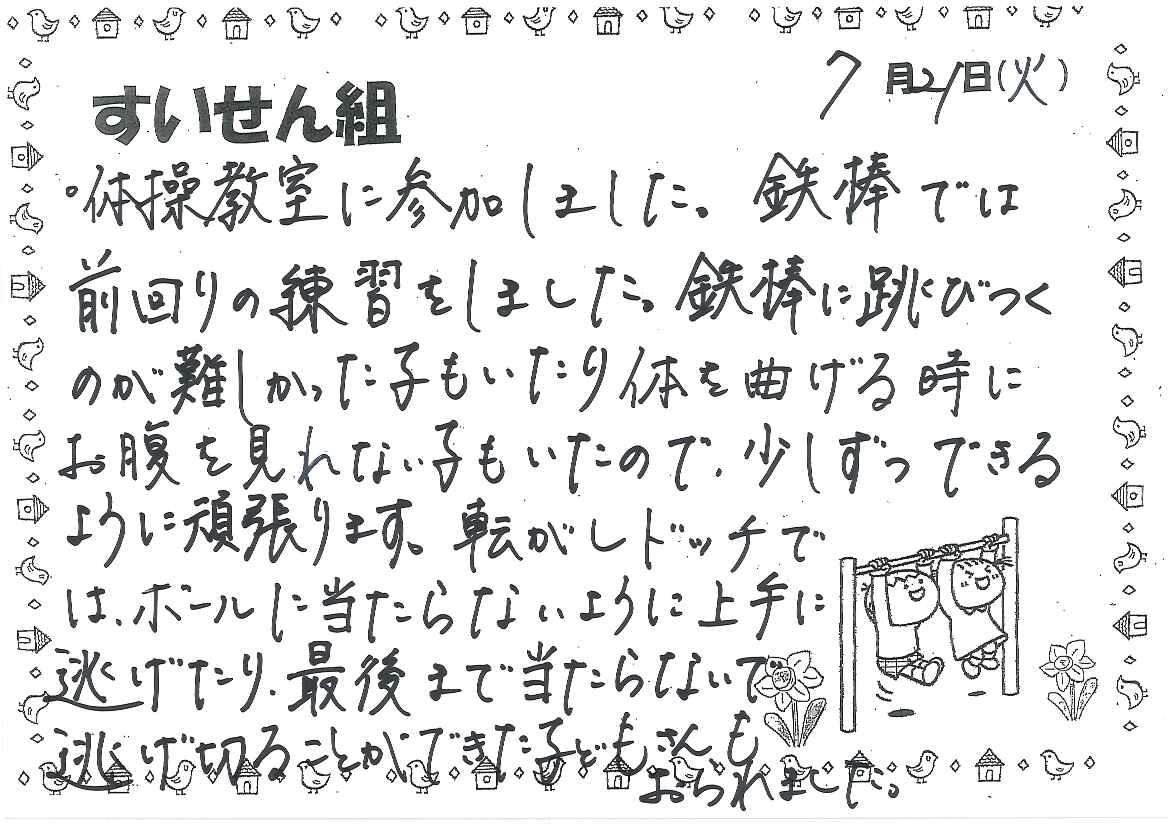 7月21日(火)
すいせん組
。体操教室に参加しました。鉄棒では
前回りの練習をしました。鉄棒に跳びつく
のが難しかった子もいたり体を曲げる時に
お腹を見れない子もいたので、少しずつできる
ように頑張ります。転がしドッチで
は、ボールに当たらないように上手に
逃げたり、最後まで当たらないで
逃げ切ることができた子どもさんも
おられました。